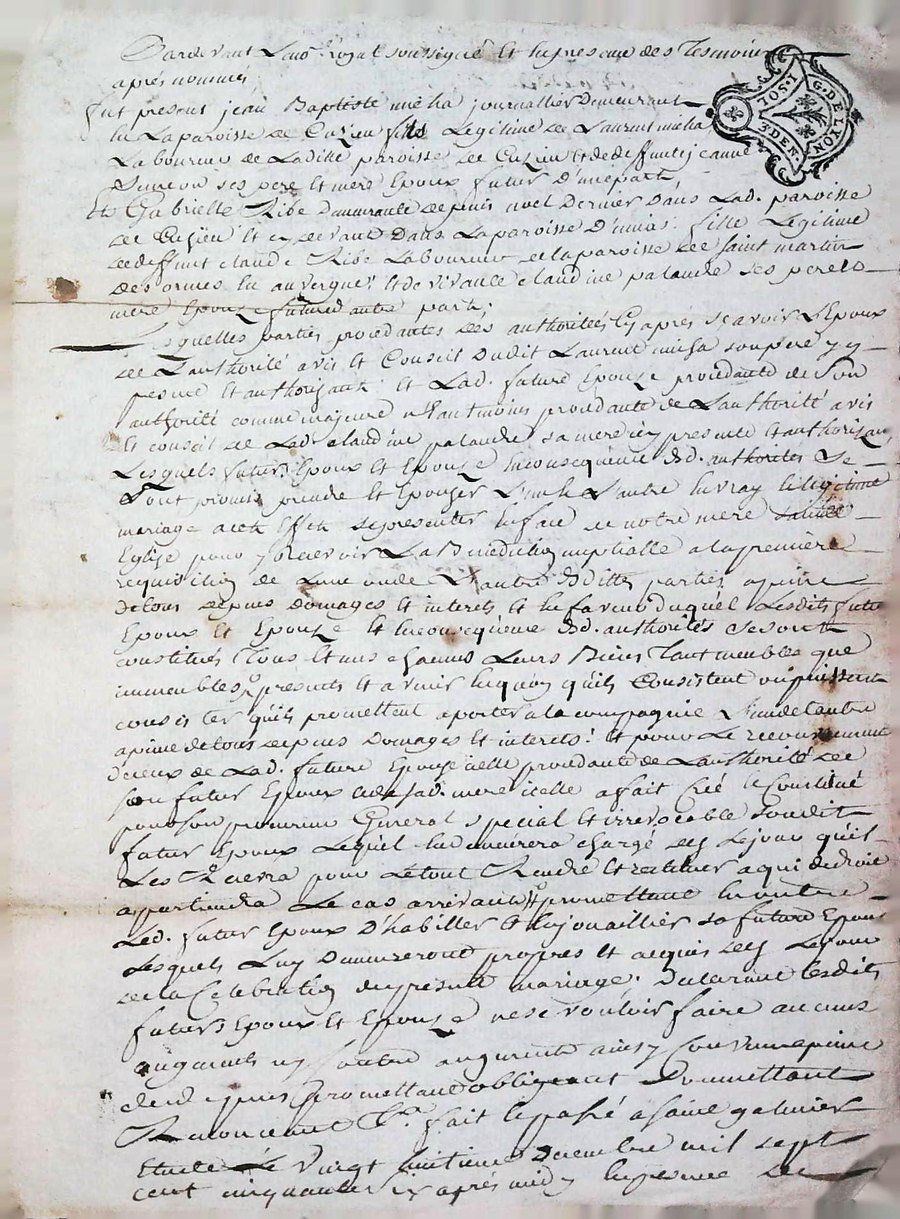 Pardevant Le no.re Royal soussigné Et En presence des Tesmoins
aprés nommés
fut present jean Baptiste micha journallier Demeurant
En La paroisse de Cuzieu fils Legitime de Laurent micha
Laboureur de Laditte paroisse de Cuzieu Et de deffunte jeanne
Simeon ses pere Et mere Epoux futur D'une part
Et Gabrielle Ribe Demeurante depuis noel Dernier Dans Lad. paroisse
de Cuzieu Et cy devant Dans La paroisse D'unias fille Legitime
de deffunt claude Ribe Laboureur de la paroisse de Saint martin
Des ormes En auvergne Et de vivante claudine palandre ses pere Et
mere Epouze future D'autre part;
Lesquelles parties procedantes des authoritées Cy aprés scavoir L'Epoux
de L'authorité avis Et Conseil Dudit Laurent micha son pere y cy
present Et authorisant Et Lad. future Epouze procedante de Son
authorité comme majeure neantmoins procedante de L'authorité avis
Et conseil de Lad. claudine palandre sa mere icy presente Et authorisan.
Lesquels futurs Epoux Et Epouze En consequence Esd. authorités Se
Sont promis prendre Et Epouzer L'un Et L'autre En vray Et legitime
mariage a cet Effet se presenter En face de notre mere Sainte
Eglise pour y Recevoir La Benediction nuptialle a la premiere
requisition de L'une ou de L'autre Desdittes parties a peine
de tous depens Domages Et interets Et En faveur Duquel Lesdits futur
Epoux Et Epouze Et En consequence Esd. authorités Se sont
constitués Tous Et uns chacuns Leurs Biens Tant meubles que
immeubles presents Et a venir En quoy qu'ils Consistent ou puissent
consister qu'ils promettent aporter a la compagnie L'un de L'autre
a peine de tous depens Domages Et interets! Et pour Le recouvrement
D'iceux de Lad. future Epouze icelle procedante de L'authorité de
son futur Epoux Et de sad. mere icelle a fait créé Et Constitué
pour son procureur General special Et irrevocable Sondit
futur Epoux Lequel En demeurera chargé dez Le jour qu'il
Les Recevra pour Le tout Rendre Et restituer a qui de droit
appartiendra Le cas arrivant promettant En outre
Led. futur Epoux D'habiller Et Enjouaillier sa future Epouze
Lesquels Luy Demeureront propres Et acquis dez Le jour
de la Celebration du present mariage. Declarant Lesdits
futurs Epoux Et Epouze ne se vouloir faire aucuns
augments ny contre augments ainsy Convenu a peine
de depens promettant obligeant Soumettant
Renoncant &a. fait Et passé a saint galmier
Etude Le Vingt huitieme Decembre mil sept
cent cinquante six aprés midy En presence de
G. DE LYON
1. SOL
3. DEN.